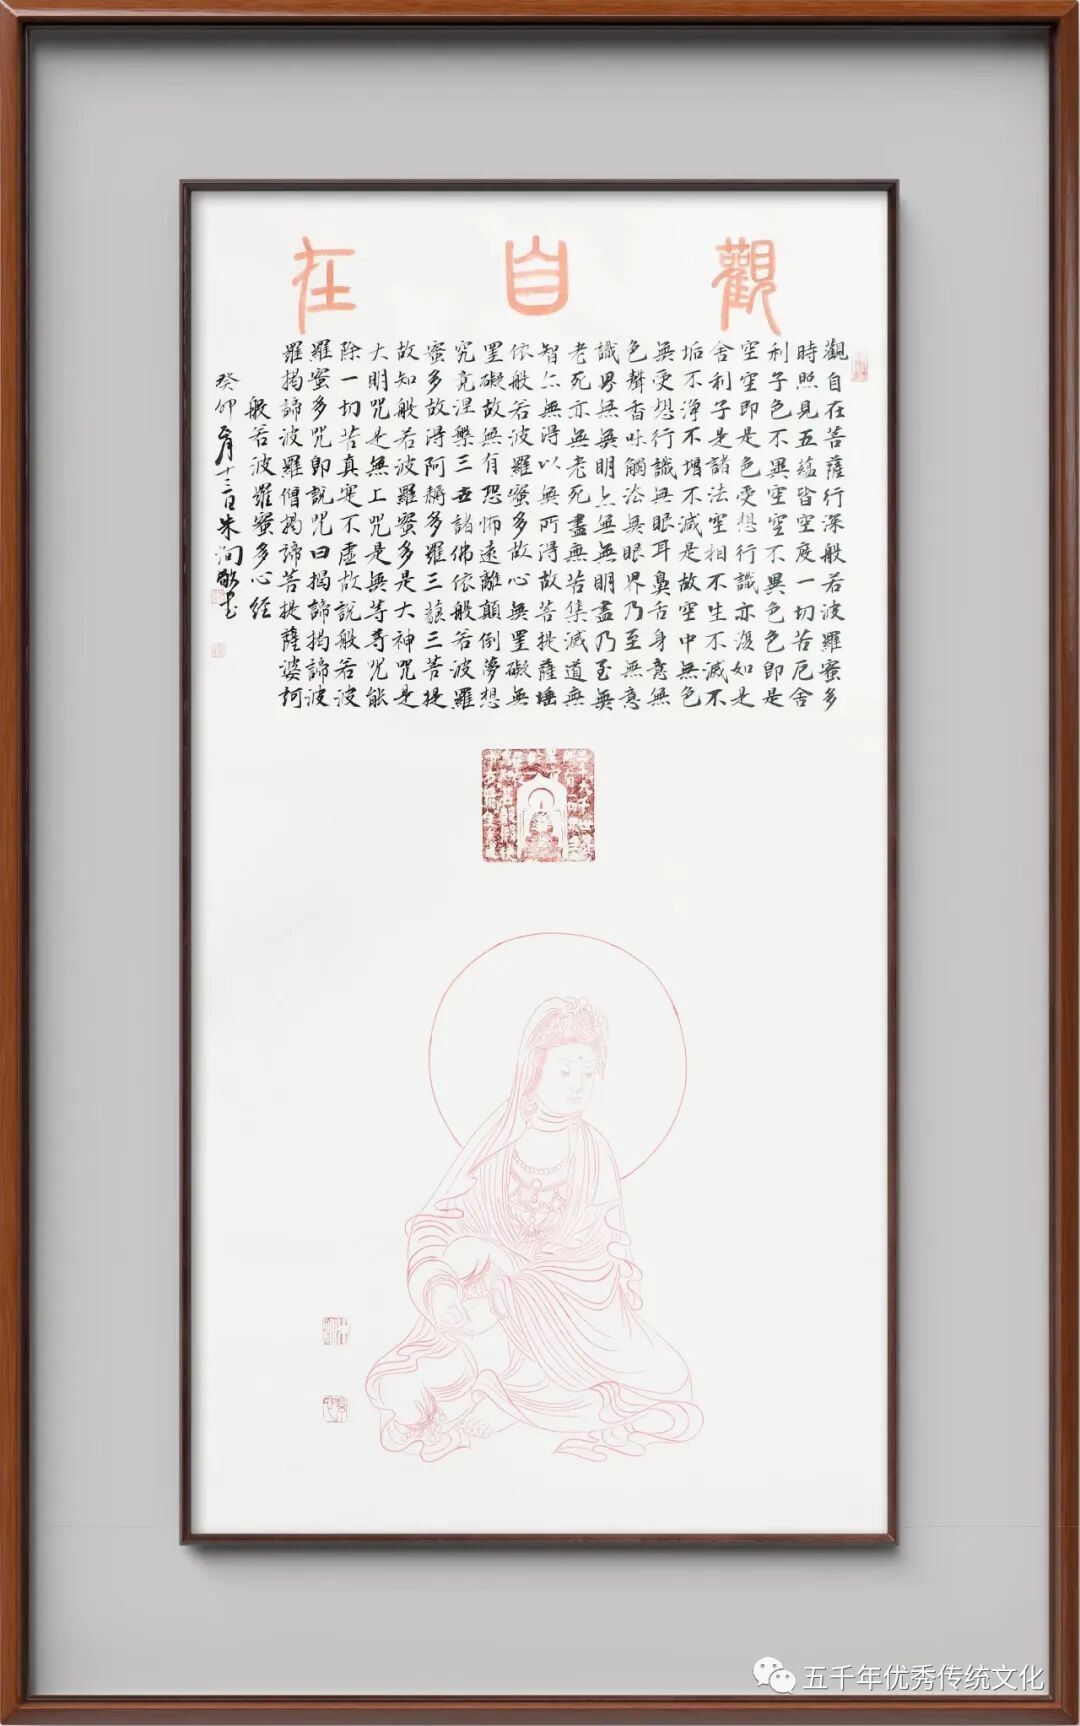 觀自在
觀自在菩薩行深般若波羅蜜多
時照見五蘊皆空度一切苦厄舍
利子色不異空空不異色色即是
空空即是色受想行識亦復如是
舍利子是諸法空相不生不滅不
垢不淨不增不減是故空中無色
無受想行識無眼耳鼻舌身意無
色聲香味觸法無眼界乃至無意
識界無無明亦無無明盡乃至無
老死亦無老死盡無苦集滅道無
智亦無得以無所得故菩提薩埵
依般若波羅蜜多故心無罣礙無
罣礙故無有恐怖遠離顛倒夢想
究竟涅槃三世諸佛依般若波羅
蜜多故得阿耨多羅三藐三菩提
故知般若波羅蜜多是大神咒是
大明咒是無上咒是無等等咒能
除一切苦真實不虛故說般若波
羅蜜多咒即說咒曰揭諦揭諦波
羅揭諦波羅僧揭諦菩提薩婆訶
般若波羅蜜多心經
癸卯月十三日朱洵敬書
五千年优秀传统文化